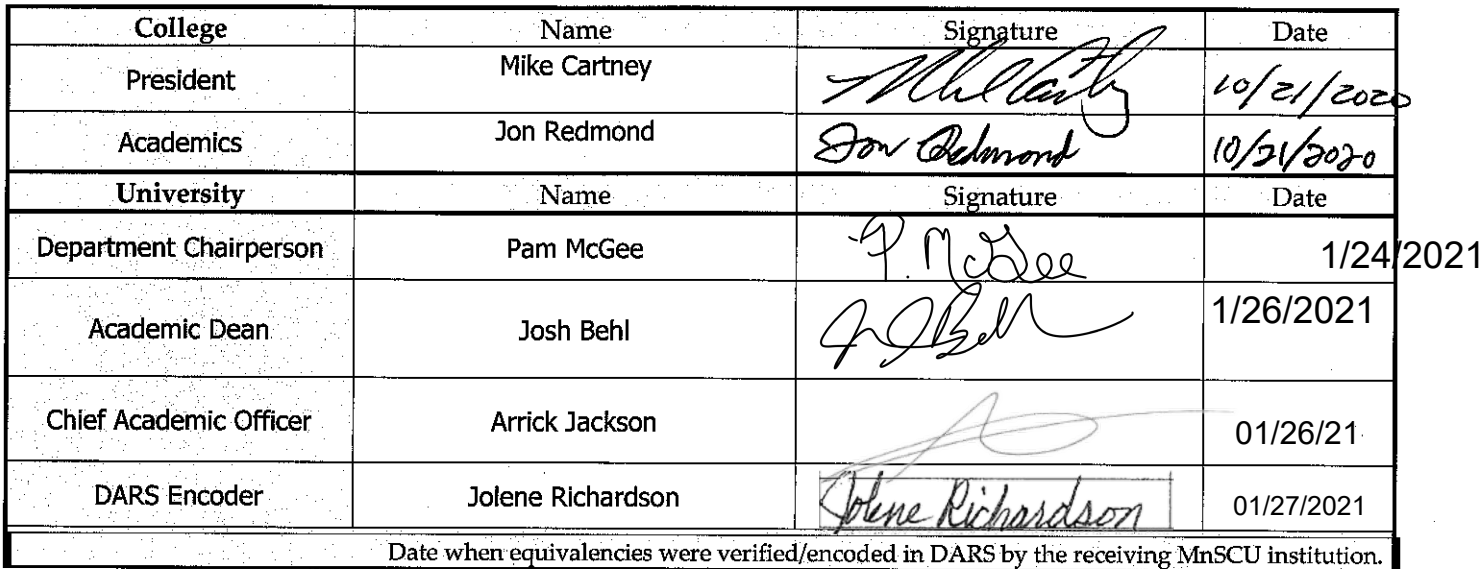 College Name Signature Date
President Mike Cartney 10/21/2020
Academics Jon Redmond Jon Redmond 10/21/2020
University Name Signature Date
Department Chairperson Pam McGee P. McGee 1/24/2021
Academic Dean Josh Behl 1/26/2021
Chief Academic Officer Arrick Jackson 01/26/21
DARS Encoder Jolene Richardson Jolene Richardson 01/27/2021
Date when equivalencies were verified/encoded in DARS by the receiving MnSCU institution.